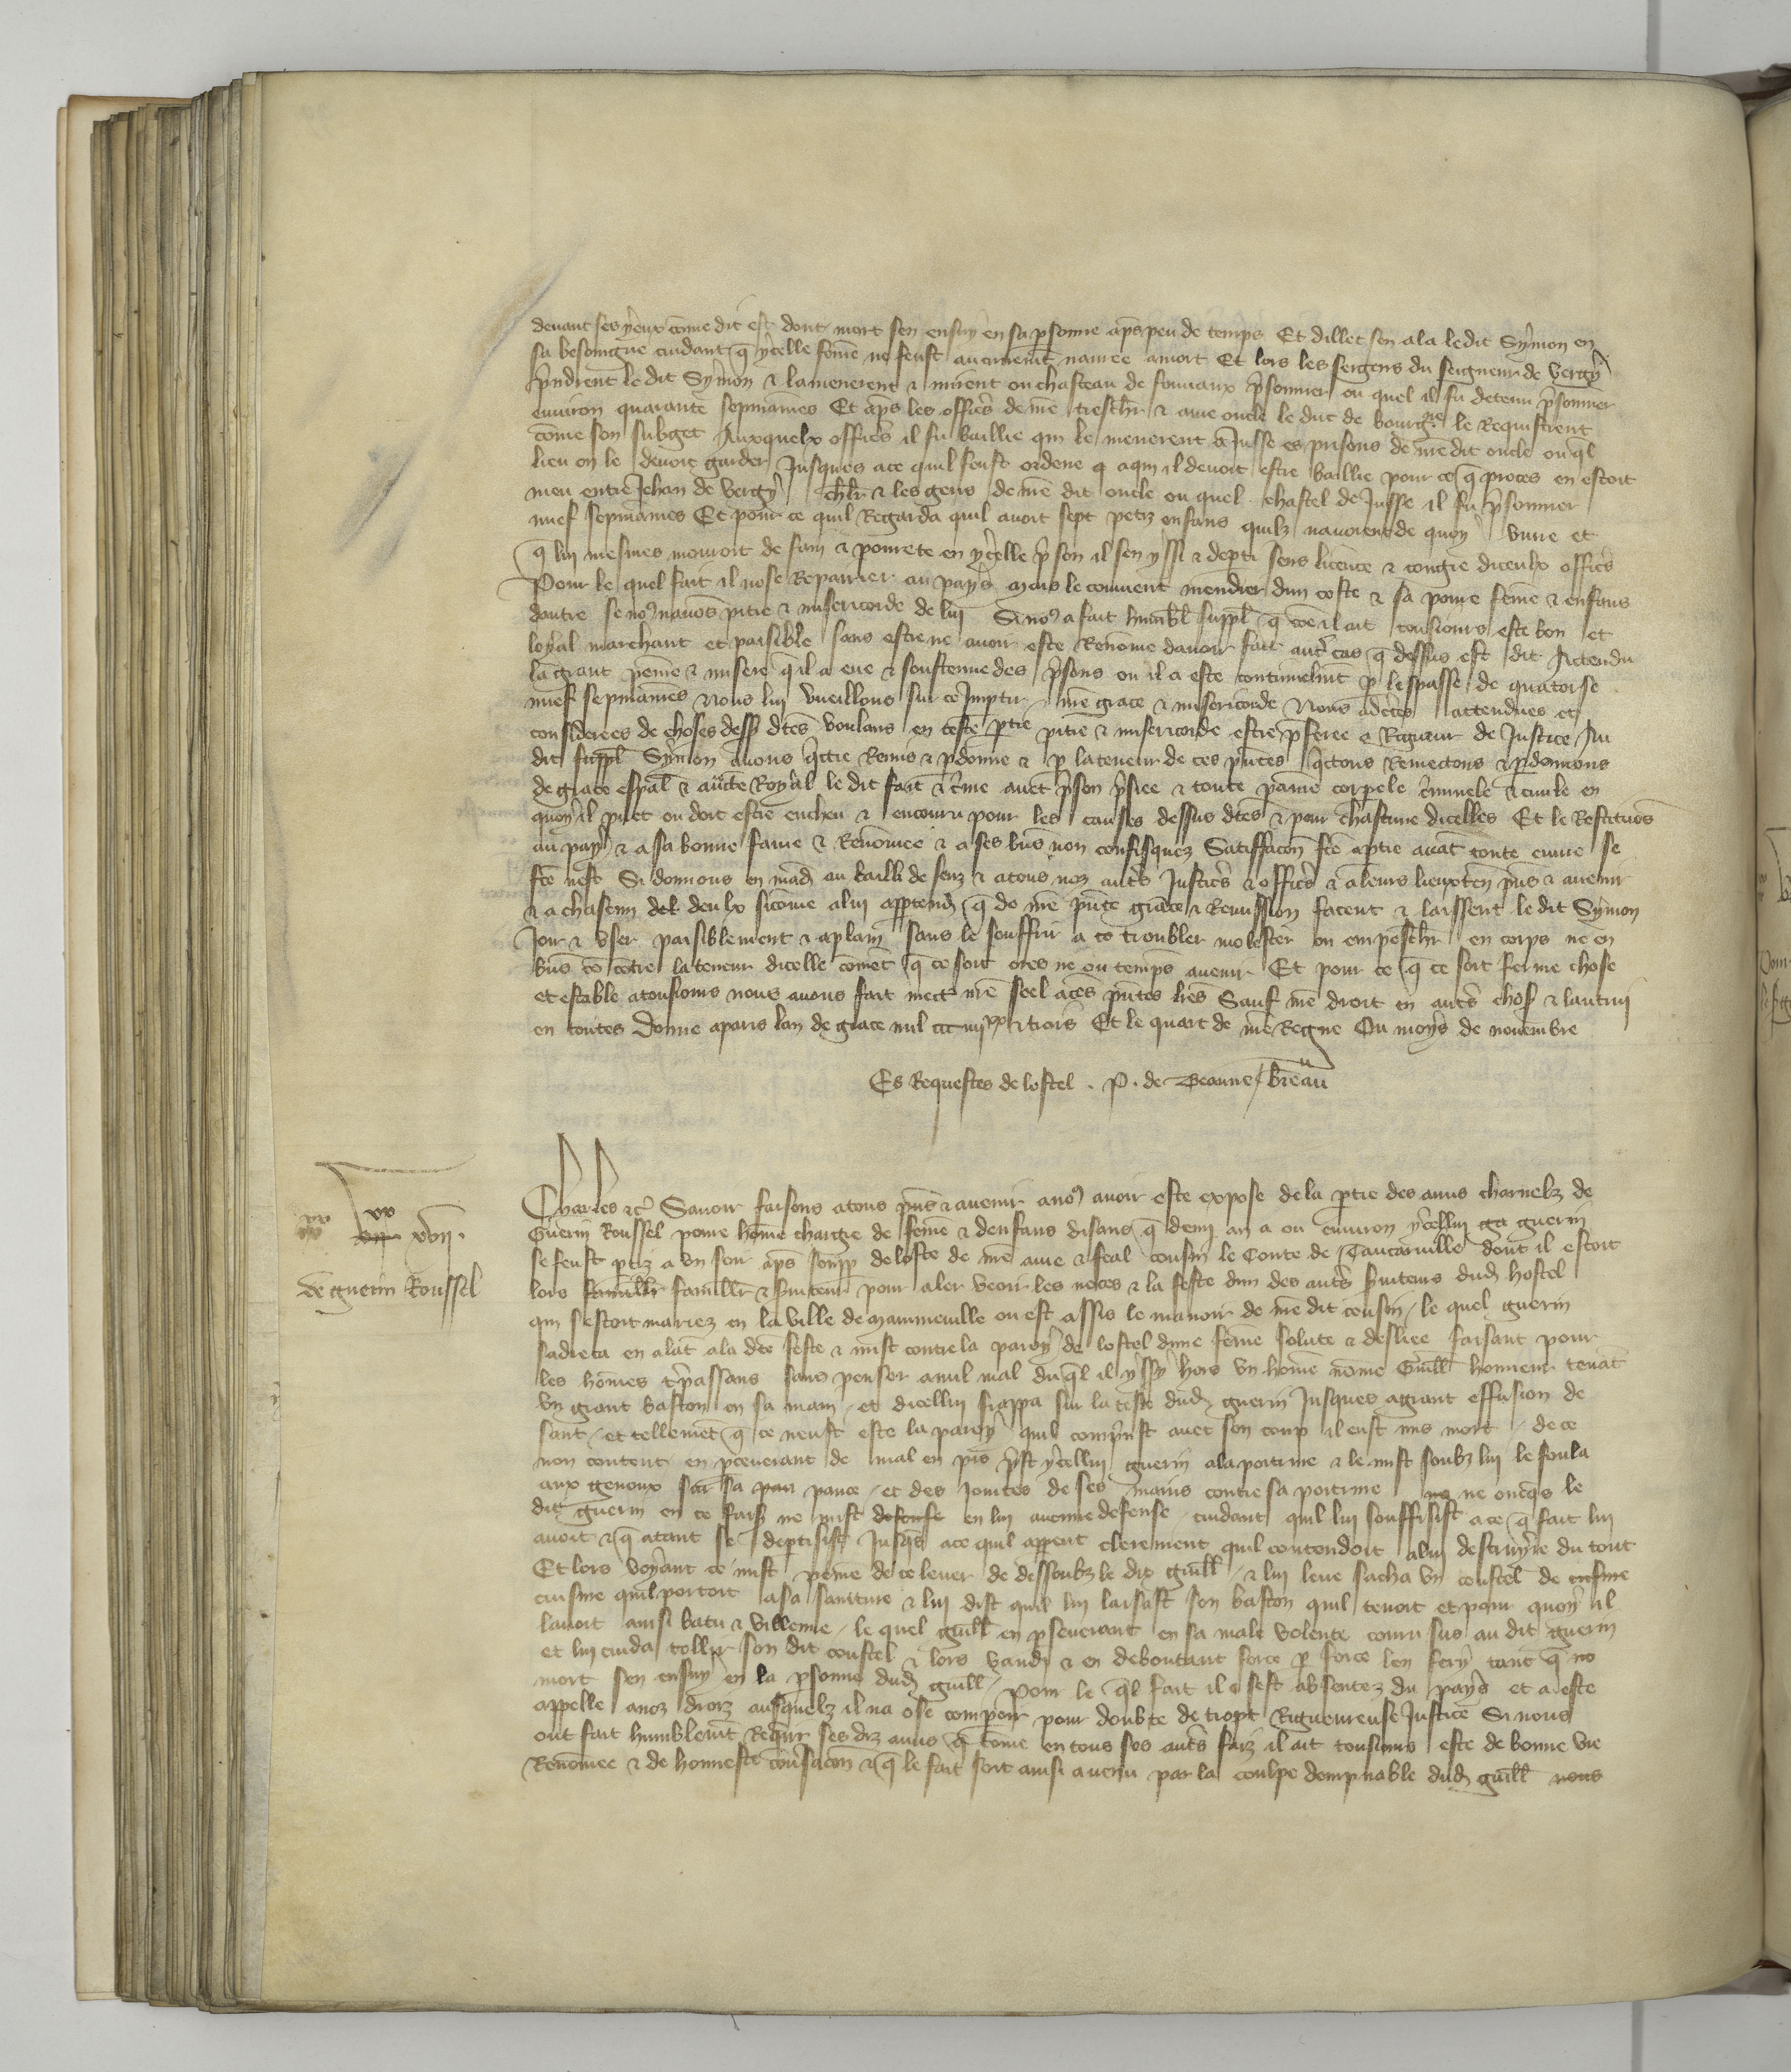 devant ses yeux cōme dit est dont mort sen ensuy en sa psonne aps peu de temps Et dillec sen ala ledit Symon en
sa besoingne cuidant q ycelle fōme ne feust aucunemt navree a mort Et lors les sergens du seigneur de vergy
prindrent le dit Symon & lamenerent & mirent ou chasteau de fonvanx psonnier ou quel il fu detenu prisonnier
environ quarante sepmaines Et aps les offics de nre treschr & ame oncle le duc de bourgne le Requistrent
cōme son subget Auxquelx offics il fu baillie qui le menerent a Jusse es prisons de nre dit oncle ou ql
lieu on le devoit garder Jusques ace quil feust ordene q aqui il devoit estre baillie pour ce q proces en estoit
meu entre Jehan de vergy chlr & les gens de nre dit oncle ou quel chastel de Jusse il fu psonnier
neuf sepmaines Et pour ce quil Regarda quil avoit sept petiz enfans quilz navoient de quoy vivre et
q lui mesmes mouroit de faim & povrete en ycelle pson il sen yssi & depti sens licence & congie diceulx offics
Pour le quel fait il nose Repairier au pays mais le convient mendier dun coste & sa povre femē & enfans
dautre se noꝰ navōs pitie & misericorde de lui Si noꝰ a fait humbl suppl q cōe il ait tousiours este bon et
loyal marchant et paisible sans estre ne avoir este Renōme davoir fait autr cas q dessus est dit Actendu
la grant peine & misere quil a eue & soustenue des psons ou il a este continuelmt p lespasse de quatorse
neuf sepmaines Nous lui vueillons sur ce Imptir nre grace & misericorde Nous adctes attendues et
considerees de choses dess dtes voulans en ceste ptie pitie & misericorde estre pferee a Rigueur de Justice Au
dit suppl Symon avons qctie Remis & pdonne & p la teneur de ces pntes qctons Remectons & pdonnons
de grace espal & aucte Royal le dit fait & cme avec pson psiee & toute paine corpele cminele & civile en
quoy il puet ou doit estre encheu & encouru pour les causes dessus dtes & pour chascune dicelles Et le Restituōs
au pays & a sa bonne fame & Renōmee & a ses bns non confisquez Satiffacon fte aptie avāt toute euvre se
fte nest Si donnons en mād au bailli de senz & atous noz autrs Justics & offics & aleurs lieuxten pns & avenir
& a chascun del deulx sicōme alui apptend q de nre pnte grace & Remission facent & laissent le dit Symon
Joir & vser paisiblement & aplain sans le souffrir a ce troubler molester ou empeschr en corps ne en
bns cō cōtre la teneur dicelle cōmet q ce soit ores ne ou temps avenir Et pour ce q ce soit ferme chose
et estable atousiours nous avons fait mectr nre seel aces pntes lres Sauf nre droit en autrs chos & lautrui
en toutes Donne aparis lan de grace mil ccc iiiixx & trois Et le quart de nre Regne Ou moys de novembre
Es Requestes de lostel . P . de Beaune / breau
xx xvii .
de guerin Roussel
Charles &c Savoir faisons atous pns & avenir anoꝰ avoir este expose de la ptie des amis charnelz de
Guerin Roussel povre hōme chargie de femē & denfans disans q demi an a ou environ ycellui ga guerin
se feust ptiz a vn soir aps soupp de loste de nre ame & feal cousin le Conte de Tancarville dont il estoit
lors famillr famillr & Sviteur pour aler veoir les neces & la feste dun des autrs Sviteurs dud hostel
qui sestoit mariez en la ville de mannevville ou est assis le manoir de nre dit cousin / le quel guerin
sadreca en alāt ala dte feste & mist contre la paroy de lostel dune femē solute & desliee faisant pour
les hōmes trpassans sans penser anul mal du ql il yssy hors vn hōme nōme Guill honneur tenāt
vn grant baston en sa main / et dicellui frappa sur la teste dud guerin Jusques a grant effusion de
sanc / et tellemēt q ce neust este la paroy quil compnst avec son coup il eust mis mort / de ce
non content en pceverant de mal en pis prist ycellui guerin ala poitrine & le mist soubz lui le foula
aux genoux sur sa pan pance / et des Jointes de ses mains contre sa poitrine ne ne oncqs le
dit guerin en ce fais ne mist defense en lui aucune defense / cuidant quil lui souffisist a ce q fait lui
avoit & q atant se deptisist Jusqs ace quil apperut clerement quil contendoit alui destruyre du tout
Et lors voyant ce mist peine de ce lever de dessoubz le dit guill / & lui leve sacha vn coustel de cuisine
cuisine quil portoit a sa sainture & lui dist quil lui laissast son baston quil tenoit et pour quoy il
lavoit ainsi batu & villenne / le quel guill en psevrant en sa male volente couru sus au dit guerin
et lui cuida tollir son dit coustel & lors vaudi & en deboutant force p force len fery tant q
mort sen ensuy en la psonne dud guill / Pour le ql fait il sest absentez du pays et a este
appelle anoz droiz ausquelz il na ose comperoir pour doubte de tropt Rigueureuse Justice Si nous
ont fait humblemt Requir ses diz amis q cōme en tous ses autrs faiz il ait tousiours este de bonne vie
Renōmee & de honneste convsacon & q le fait soit ainsi avenu par la coulpe dempnable dud guill nous